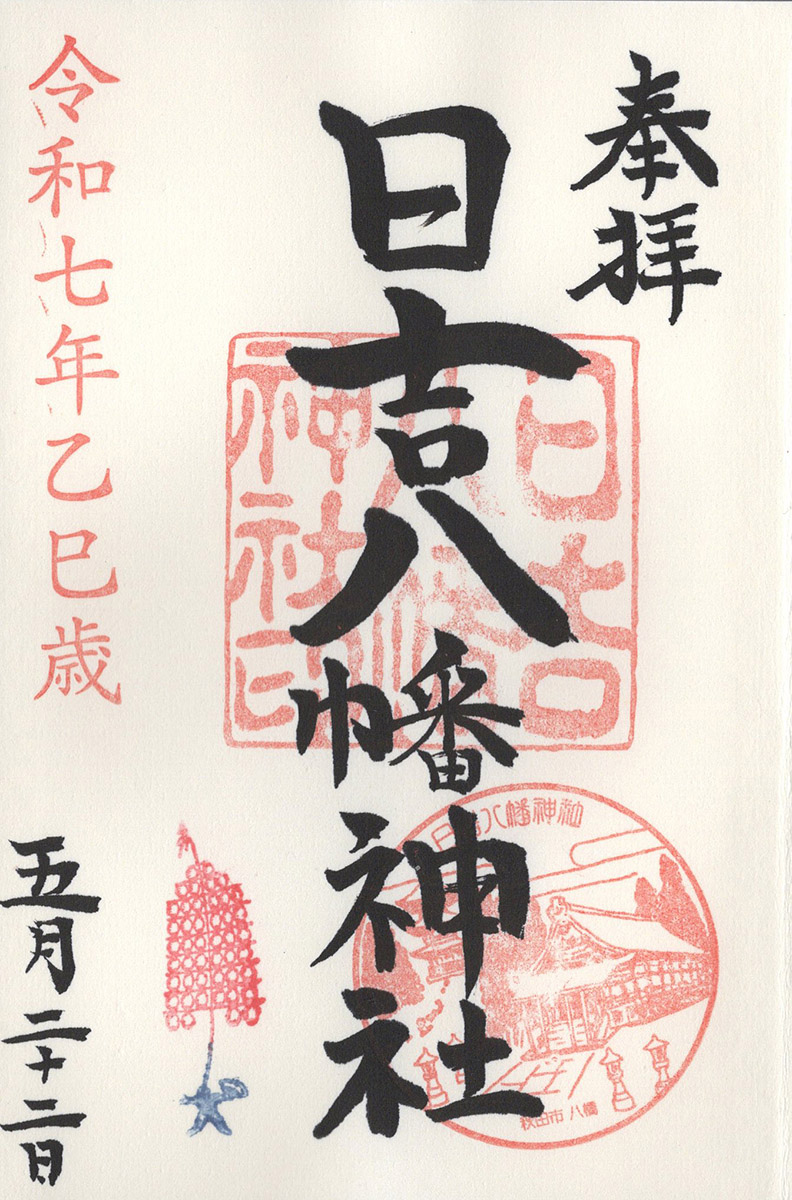 奉拝
日吉八幡神社
日吉
八幡
神社印
日吉八幡神社
秋田市 八幡
令和七年乙巳歳
五月二十二日